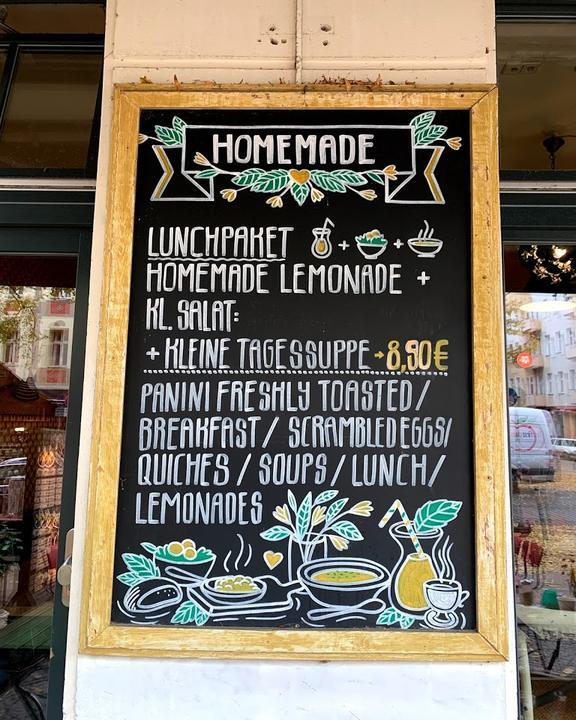 HOMEMADE
LUNCHPAKET + +
HOMEMADE LEMONADE +
KL. SALAT:
+ KLEINE TAGESSUPPE → 8,90€
PANINI FRESHLY TOASTED /
BREAKFAST / SCRAMBLED EGGS/
QUICHES / SOUPS / LUNCH/
LEMONADES